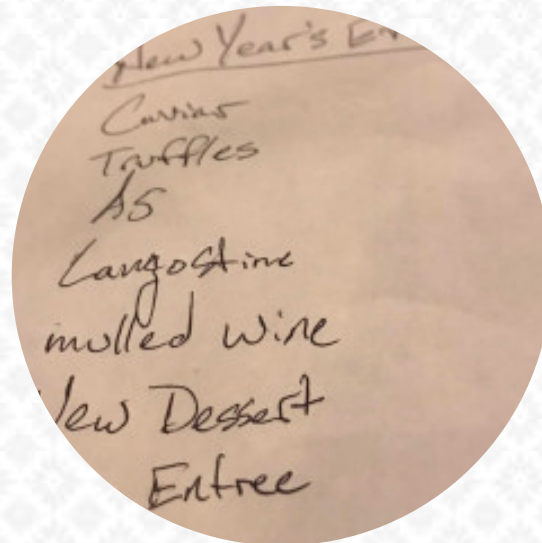 New Year's
Caviar
Truffles
A5
Langostine
mulled wine
New Dessert
Entree